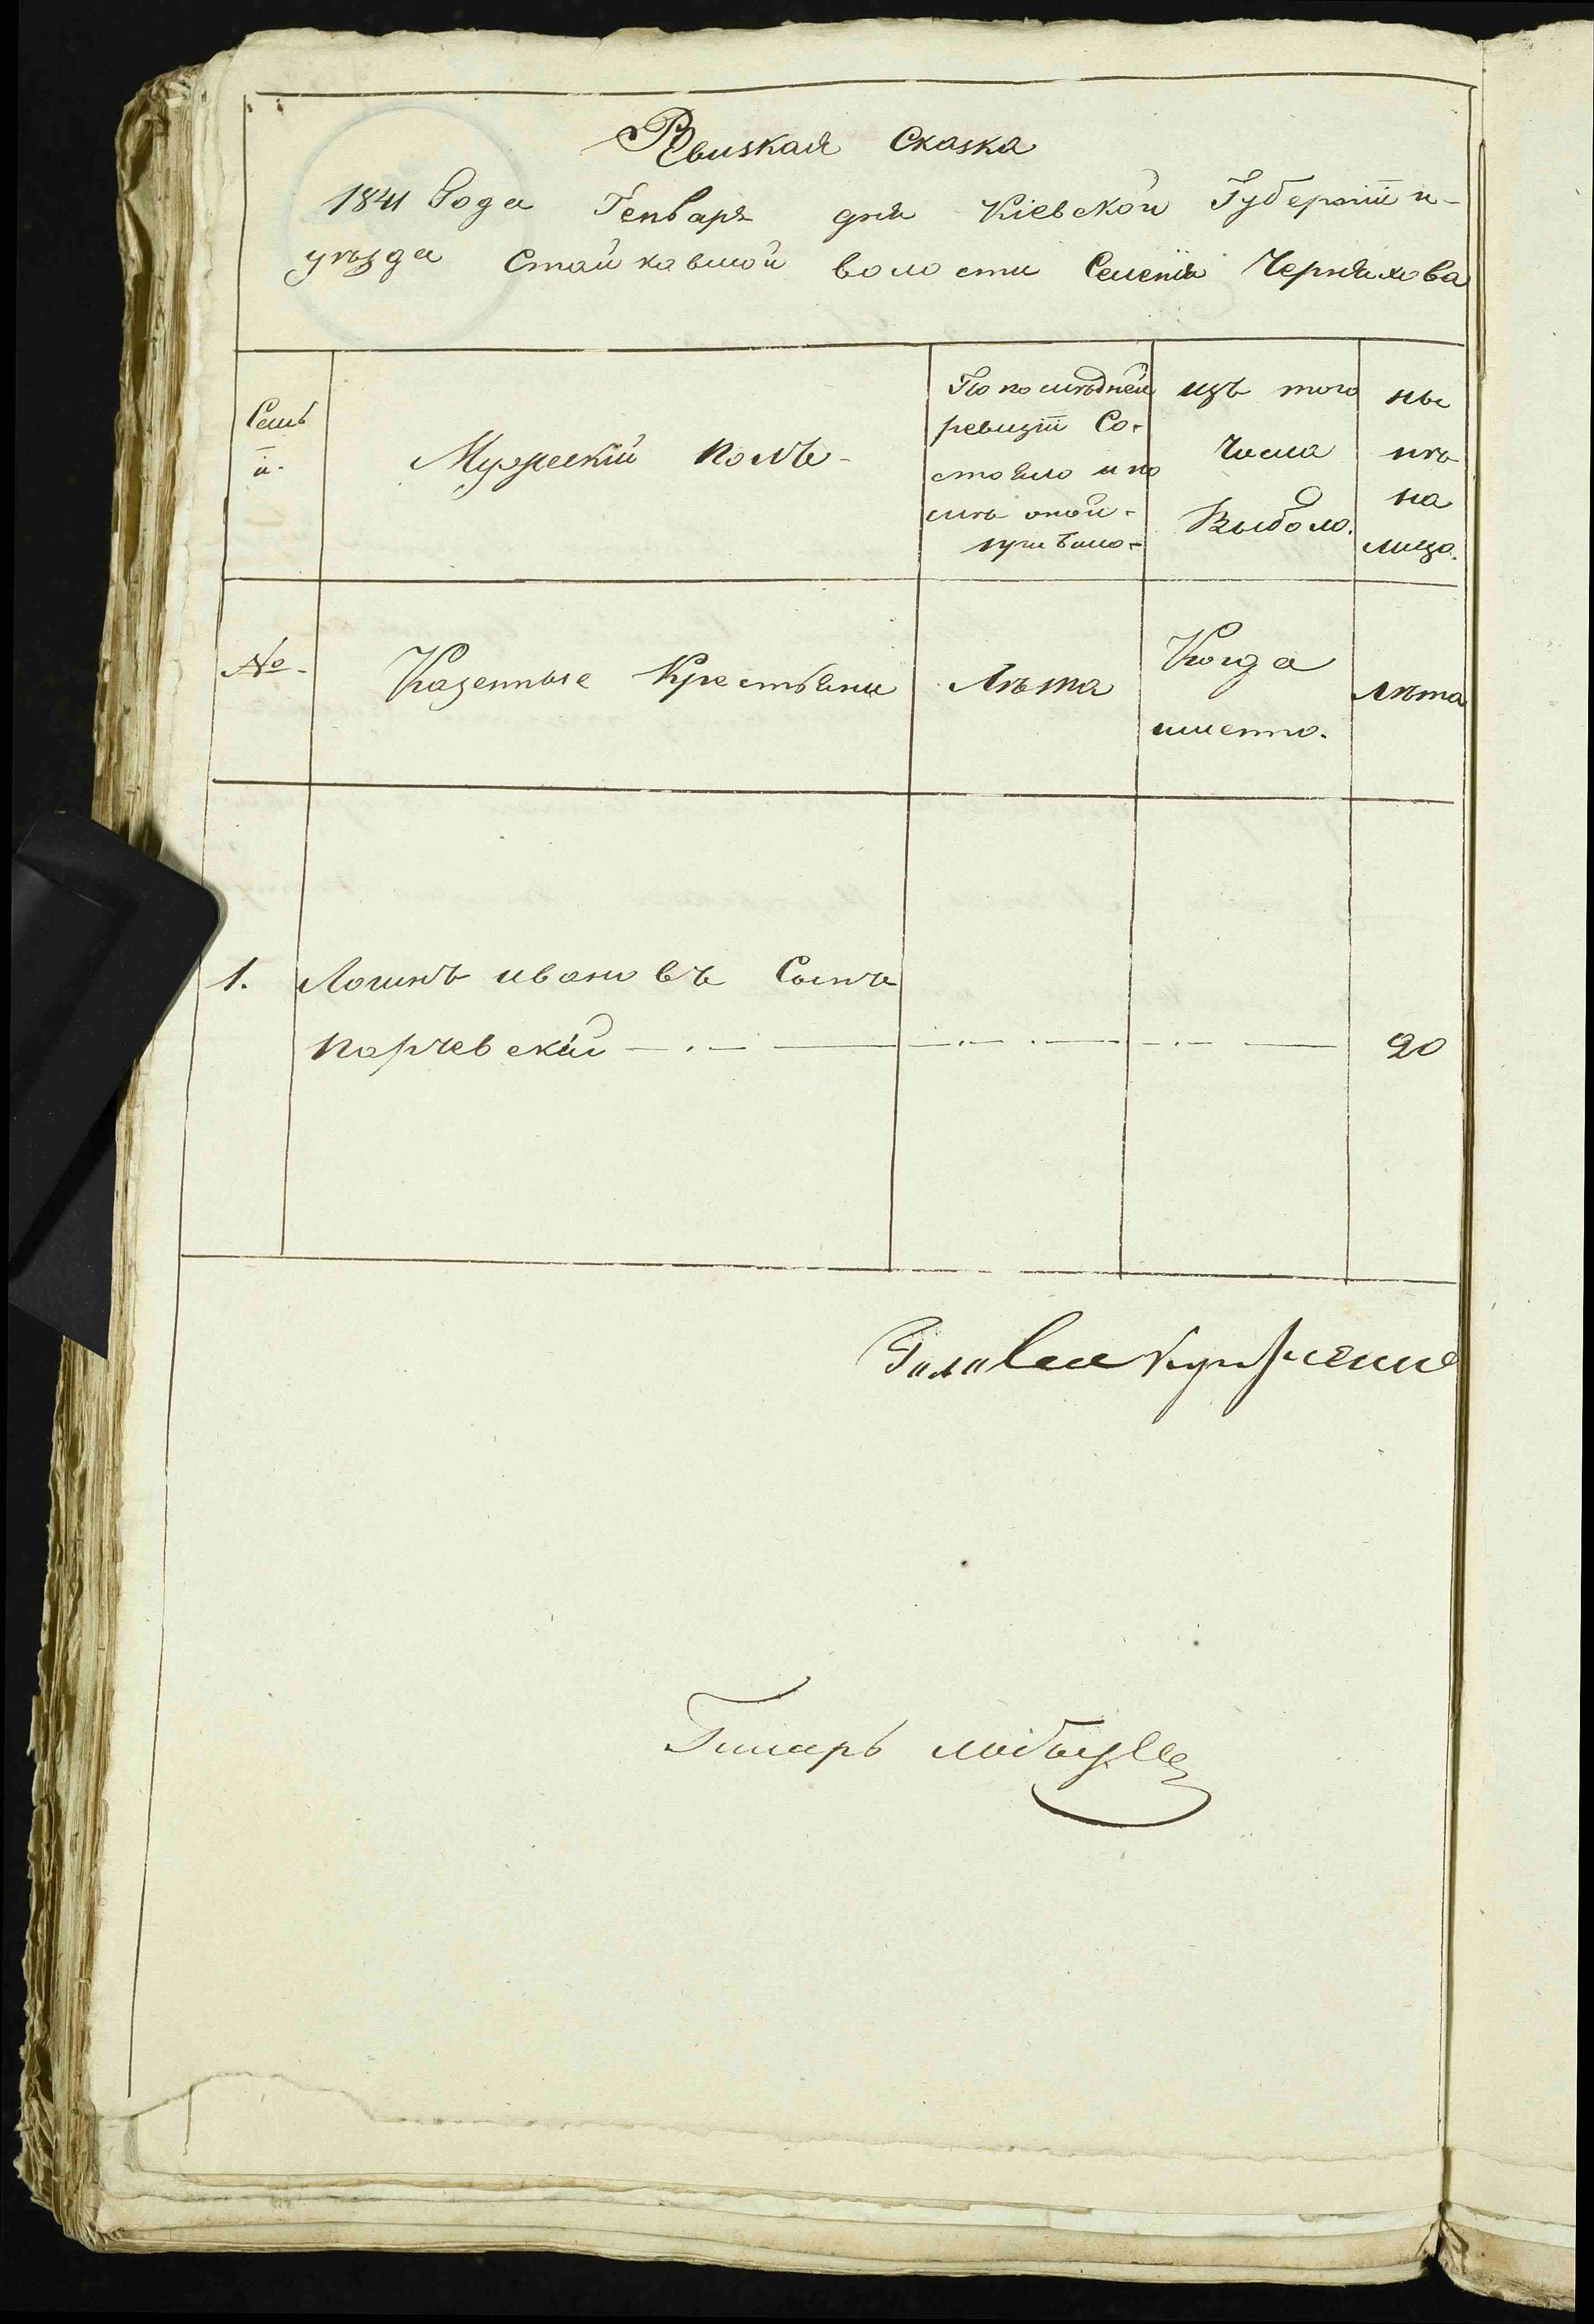 Ревизкая Сказка
1841 Года Генваря дня Кіевской Губерніи и
уѣзда Стайковской волости Селенія Черняхова
Семь
и.
Мужескій полъ
По послѣдней
ревизіи Со-
стояло и по
слѣ оной
прибыло
изъ того
числа
Выбыло.
ны
нѣ
на
лицо.
№
Казенные Крестьяни
Лѣта
Когда
именно.
Лѣта
1. Логинъ ивановъ Сынъ
Корчевский 20
Голова
Писарь